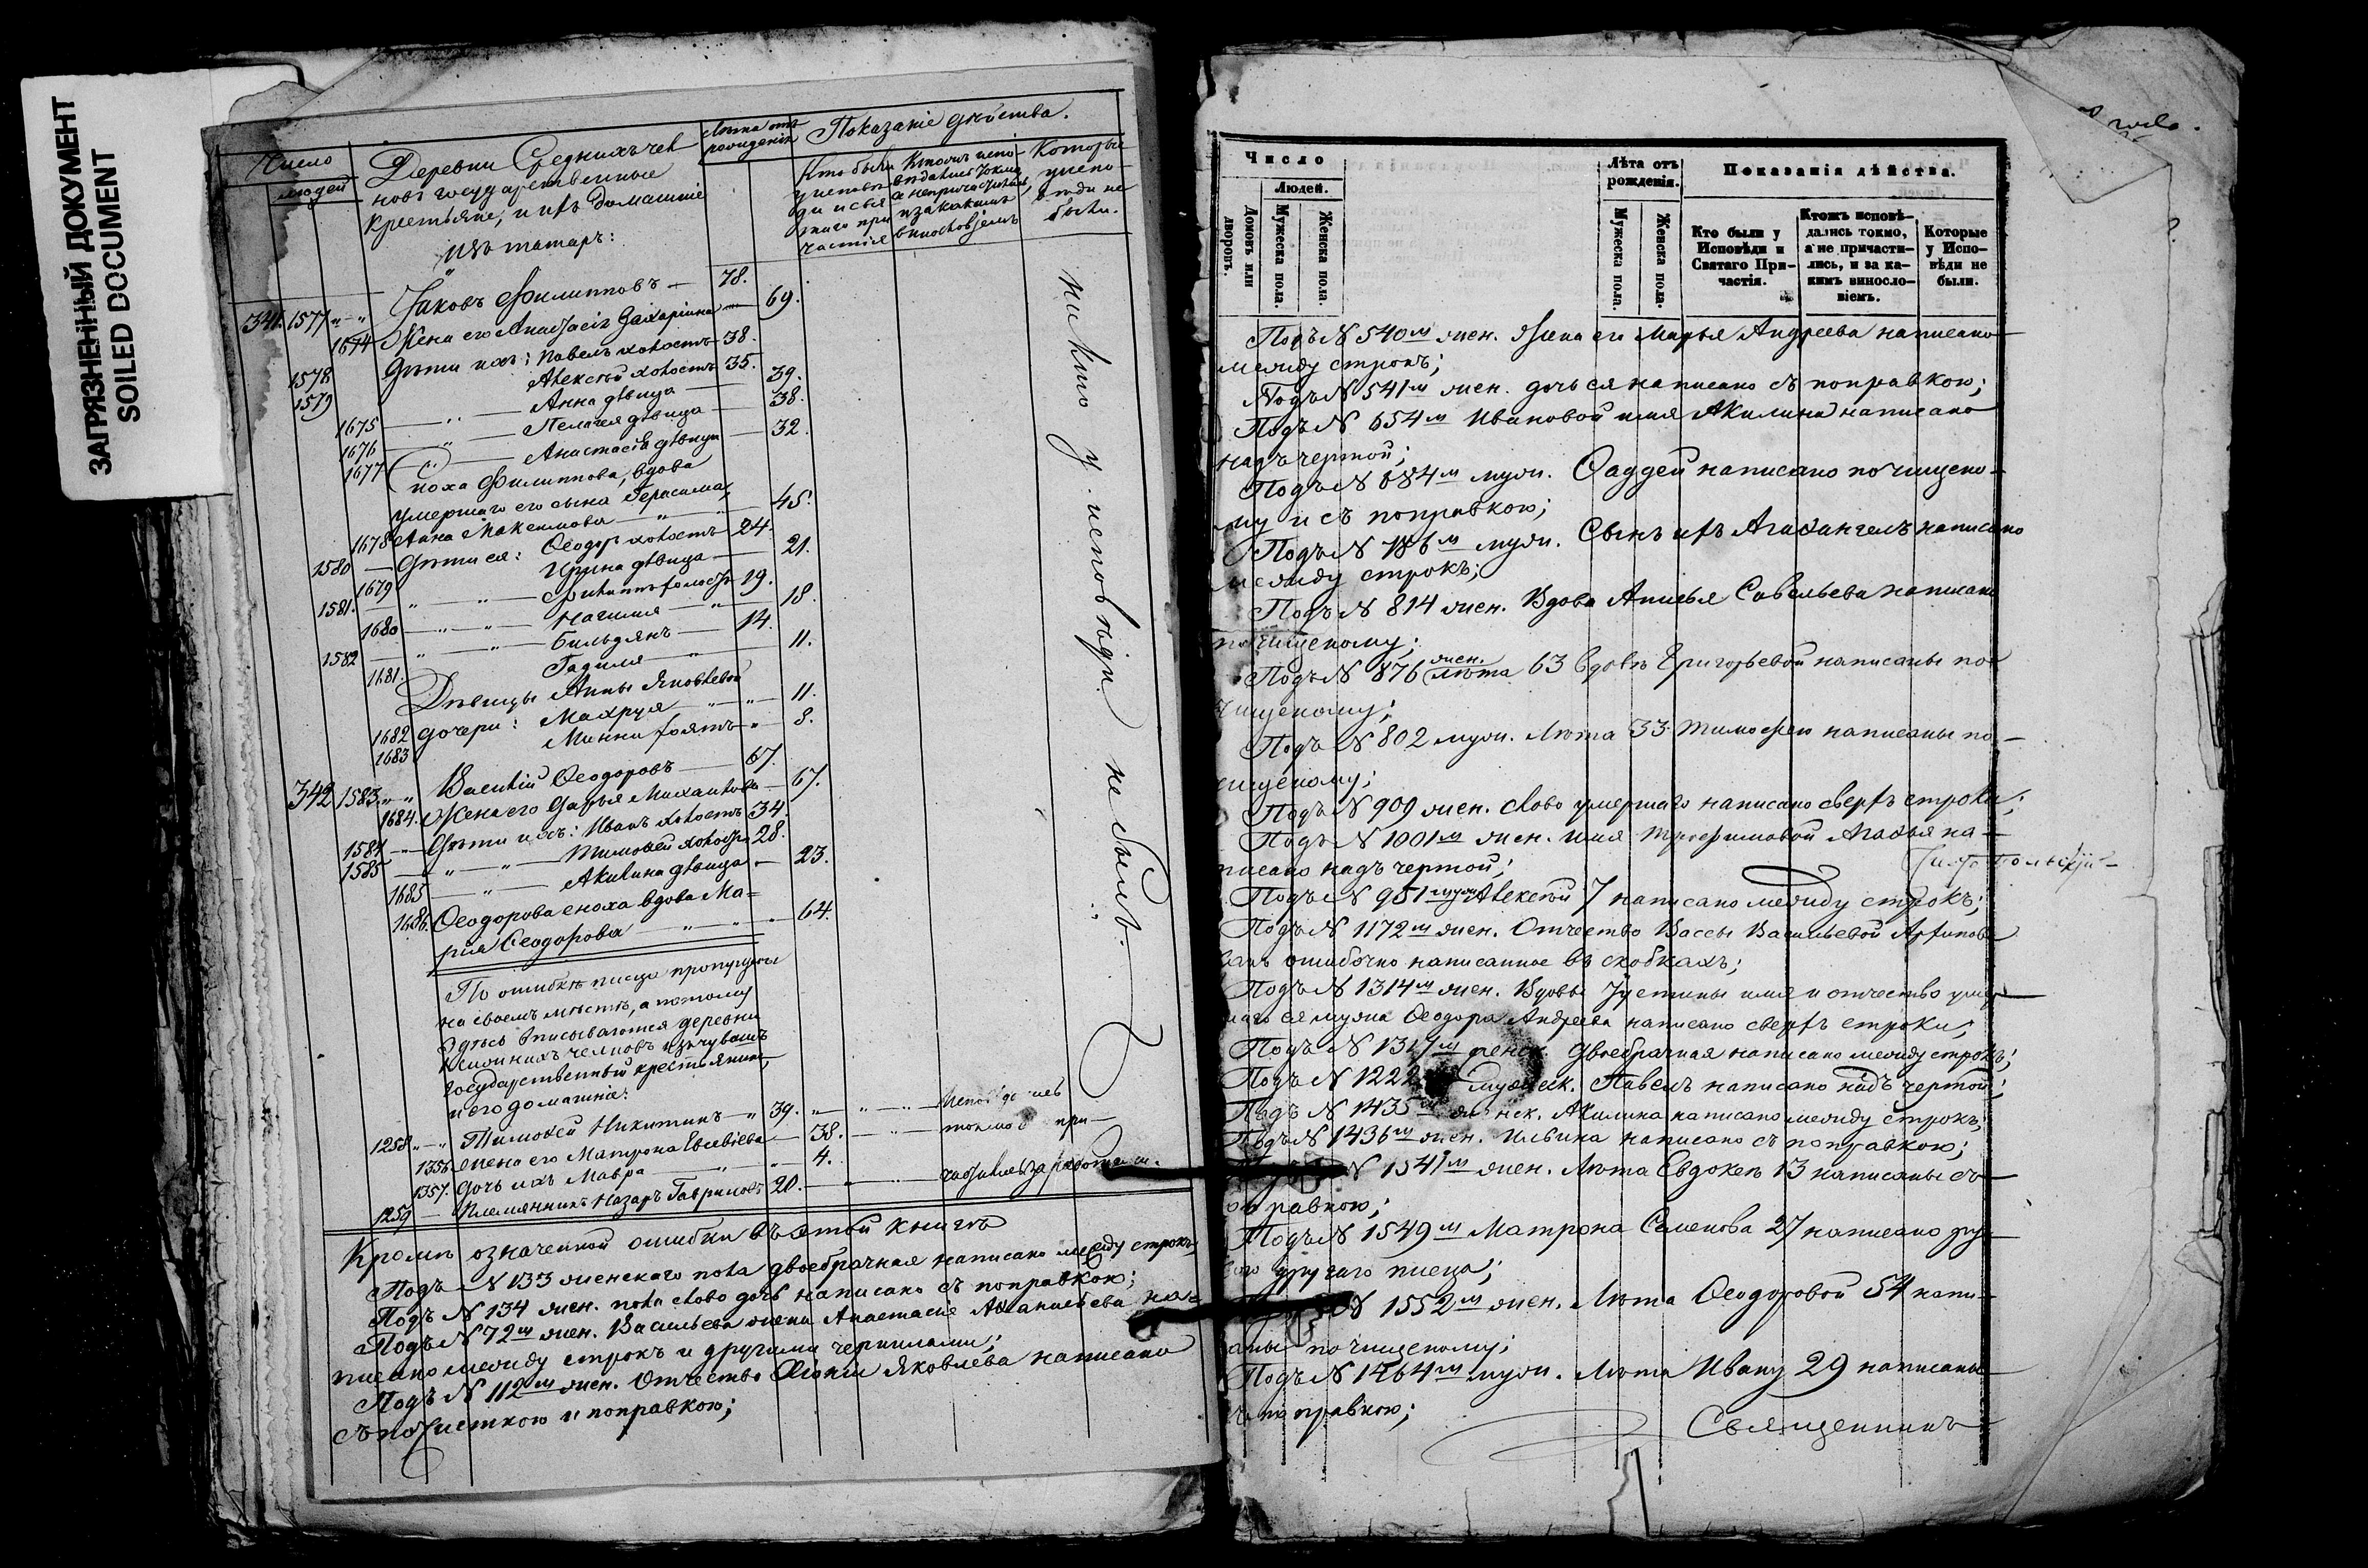 ЗАГРЯЗНЕННЫЙ ДОКУМЕНТ
SOILED DOCUMENT
Число
людей
Деревни Среднихъ чел
новъ государственные
крестьяне, и ихъ домашніе
изъ татаръ:
Лѣта отъ
рожденія
Показаніе дѣйства.
Которые
у испо-
вѣди не
были.
341. 1577 " — " Іаковъ Филипповъ — 78.
1674 Жена его Анастасія Захаріина — 69.
1578 Дѣти ихъ: Павелъ холостъ 38.
1579 Алексѣй холостъ 35.
1675 — " — Анна дѣвица — 39.
1676 — " — Пелагея дѣвица — 38.
1677 — " — Анастасія дѣвица — 32.
Филиппова, вдова
умершаго его сына Герасима,
1678 Анна Максимова — " — " 45.
1580 — Дѣти ея: Ѳеодоръ холостъ 24.
1679 Ирина дѣвица — 21.
1581. — " — " — Филиппъ холостъ 19.
1680 — " — " — Нагимя — " — 18.
1582 — " — " — Бильдянъ — 14.
1681. Гадиля — " — 11.
Дѣвицы Анны Яковлевой
1682 дочери: Махруя — " — 11.
1683 " 8.
342 1583. " " Василій Ѳеодоровъ — 67.
1684. Жена его Дарья Михайлова — 67.
1584 — Дѣти ихъ: Иванъ холостъ 34.
1585 — " — " — Тимоѳей холостъ 28.
1685 — " — Акилина дѣвица — 23.
1686. Ѳеодорова сноха вдова Ма=
рія Ѳеодорова — " — " — 64.
никто у исповѣди не былъ.
По ошибкѣ писца пропущены
на своемъ мѣстѣ, а потому
здѣсь вписываются деревни
Нижнихъ челновъ изъ чувашъ
государственный крестьянинъ,
и его домашніе:
1258 " — " Тимоѳей Никитинъ — " 39. " — " — " —
1356 Жена его Матрона Евсевіева — 38.
1357. Дочь ихъ Мавра — " — " — 4.
1259 — Племянникъ Назаръ Гавриловъ 20.
Кромѣ означенной ошибки въ этой книгѣ
Подъ N 133 женскаго пола двоебрачная написано между строкъ;
Подъ N 134 жен. пола слово дочь написано съ поправкою;
Подъ N 72м жен. Васильева жена Анастасія Аѳанасьева на=
писано между строкъ и другими чернилами;
Подъ N 112м жен. Отчество Яковлева написано
съ почисткою и поправкою;
Число
Домовъ или дворовъ.
Людей.
Мужеска пола.
Женска пола.
Лѣта отъ
рожденія.
Мужеска пола.
Женска пола.
Показанія дѣйства.
Кто были у
Исповѣди и
Святаго При-
частія.
Ктожъ исповѣ-
дались токмо,
а не причасти-
лись, и за ка-
кимъ виносло-
віемъ.
Которые
у Испо-
вѣди не
были.
Подъ N 540м жен. Жена его Марья Андреева написано
между строкъ;
Подъ N 541м жен. дочь ея написано съ поправкою;
Подъ N 654м Ивановой имя Акилина написано
надъ чертой;
Подъ N 684м муж. Ѳаддей написано по чищено-
му и съ поправкою;
Подъ N 786м муж. Сынъ ихъ Агаѳангелъ написано
между строкъ;
Подъ N 814 жен. Вдова Анисья Савельева написано
по чищеному;
Подъ N 876 жен. лѣта 63 вдовѣ Григорьевой написаны по
чищеному;
Подъ N 802 муж. Лѣта 33 Тимоѳею написаны по-
чищеному;
Подъ N 909 жен. слово умершаго написано сверхъ строки;
Подъ N 1001м жен. имя Трофимовой Агаѳья на-
писано надъ чертой;
Подъ N 951 муж. Алексѣй 7 написано между строкъ;
Подъ N 1172м жен. Отчество Вассы Васильевой
ошибочно написанное въ скобкахъ;
Подъ N 1314м жен. Вдовы Іустины имя и отчество умер
шаго ея мужа Ѳеодора Андреева написано сверхъ строки;
Подъ N женск. двоебрачная написано между строкъ;
Подъ N 1222 мужеск. Павелъ написано надъ чертой;
Подъ N 1435м женск. Акилина написано между строкъ;
Подъ N 1436м жен. написано съ поправкою;
N 1541м жен. Лѣта Евдокеѣ 13 написаны съ
поправкою;
Подъ N 1549м Матрона Семенова 27 написано
другаго писца;
N 1552м жен. Лѣта Ѳеодоровой 54 напи-
саны по чищеному;
Подъ N 1464м муж. Лѣта Ивану 29 написаны
съ поправкою;
Священникъ